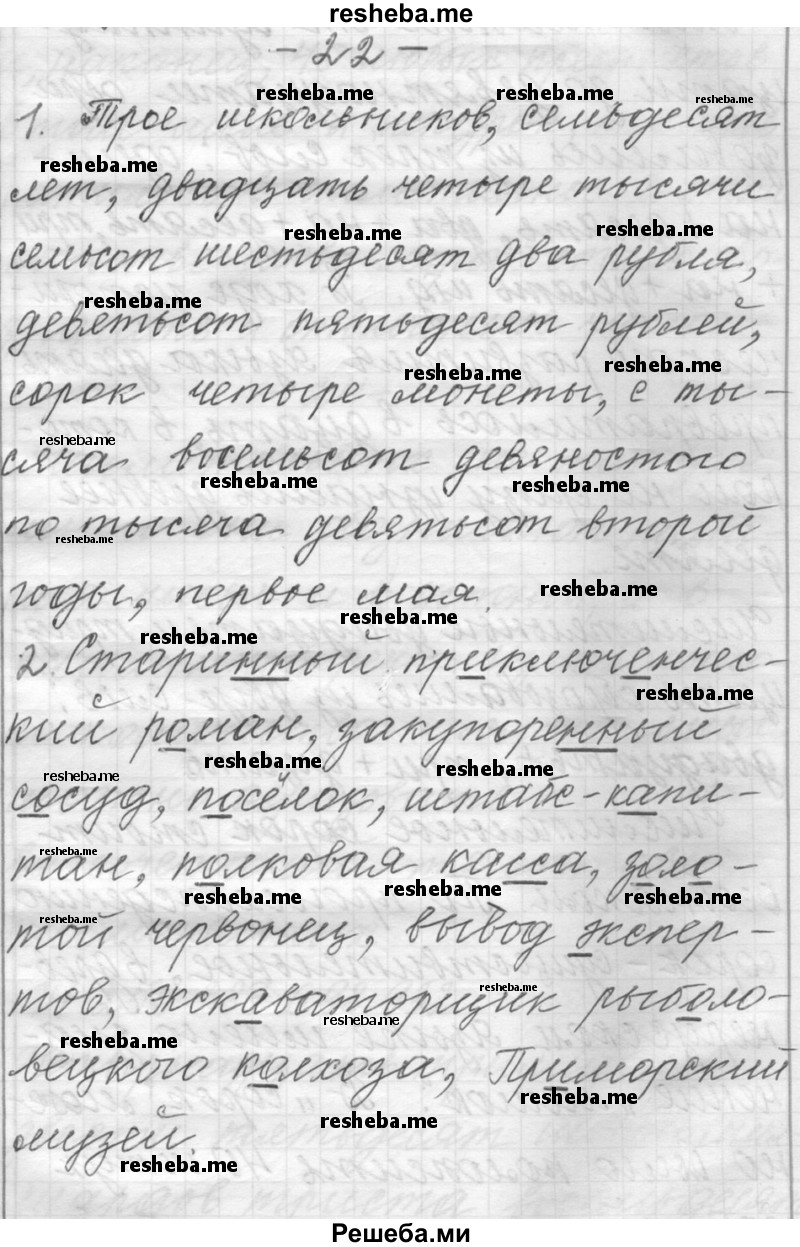 resheba.me
- 22 -
resheba.me resheba.me resheba.me
1. Трое школьников, семьдесят
resheba.me
лет, двадцать четыре тысячи
resheba.me resheba.me
семьсот шестьдесят два рубля,
resheba.me
девятьсот пятьдесят рублей,
resheba.me resheba.me
сорок четыре монеты, с ты-
resheba.me
сяча восемьсот девяностого
resheba.me resheba.me
по тысяча девятьсот второй
resheba.me
годы, первое мая.
resheba.me
resheba.me
resheba.me
2. Старинный приключенчес-
resheba.me
кий роман, закупоренный
resheba.me resheba.me
resheba.me
сосуд, посёлок, штабс-капи-
resheba.me
тан, полковая касса, золо-
resheba.me resheba.me resheba.me
resheba.me
той червонец, вывод экспер-
resheba.me
тов, экскаваторщик рыболо-
resheba.me
resheba.me
вецкого колхоза, Приморский
resheba.me
resheba.me
музей.
resheba.me
Решеба.ми